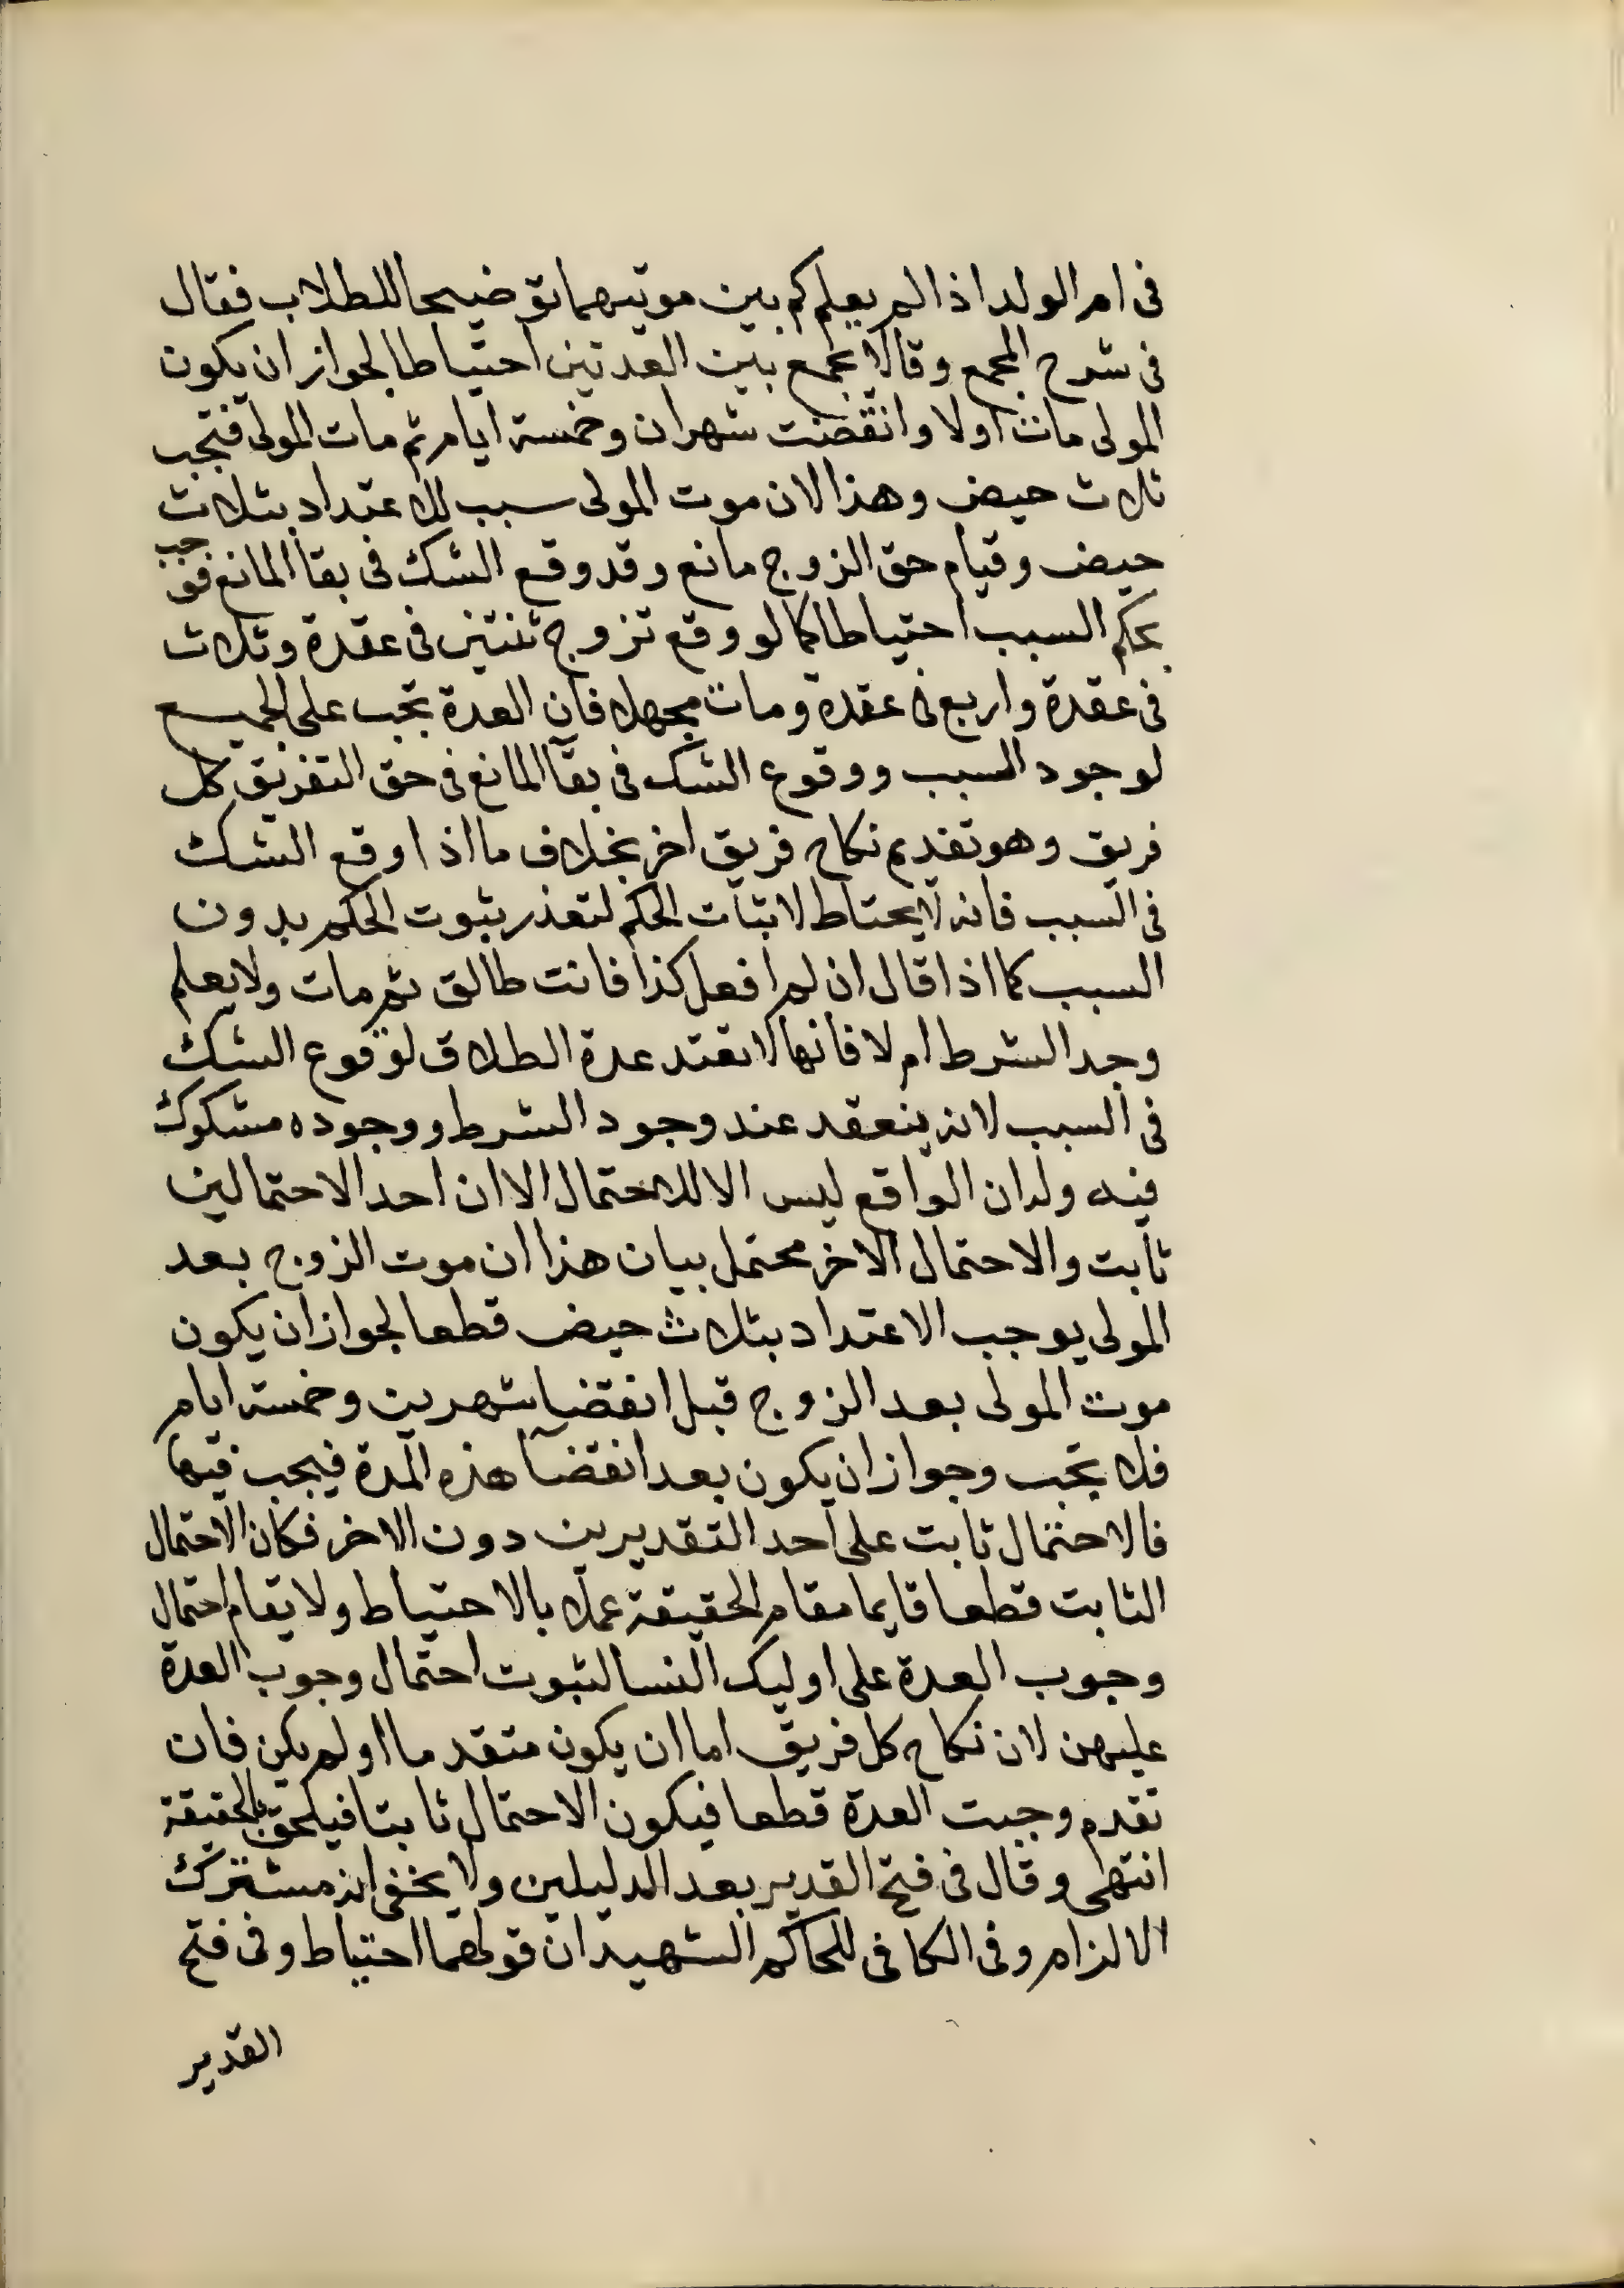 فى ام الولد اذا لم يعلم كم بين موتيهما توضيحا للطلاب فقال
فى شرح المجمع وقالا يجمع بين العدتين احتياطا لجواز ان يكون
المولى مات اولا وانقضت شهران وخمسة ايام ثم مات المولى فتجب
ثلاث حيض وهذا لان موت المولى سبب للاعتداد بثلاث
حيض وقيام حق الزوج مانع وقد وقع الشك فى بقا المانع فوجب
بحكم السبب احتياطا كما لو وقع تزوج ثنتين فى عقدة وثلاث
فى عقدة واربع فى عقدة ومات مجهلا فان العدة تجب على الجميع
لوجود السبب ووقوع الشك فى بقآ المانع فى حق التفريق كل
فريق وهو تقديم نكاح فريق اخر بخلاف ما اذا وقع الشك
فى السبب فانه لا يحتاط لاثبات الحكم لتعذر ثبوت الحكم بدون
السبب كما اذا قال ان لم افعل كذا فانت طالق ثم مات ولا يعلم
وجد الشرط ام لا فانها لا تعتد عدة الطلاق لوقوع الشك
فى السبب لانه ينعقد عند وجود الشرط ووجوده مشكوك
فيه ولدان الواقع ليس الا للاحتمال الا ان احد الاحتمالين
ثابت والاحتمال الاخر محتمل بيان هذا ان موت الزوج بعد
المولى يوجب الاعتداد بثلاث حيض قطعا لجواز ان يكون
موت المولى بعد الزوج قبل انقضا شهرين وخمسة ايام
فلا تجب وجواز ان يكون بعد انقضآ هذه المدة فيجب فيها
فالاحتمال ثابت على احد التقديرين دون الاخر فكان الاحتمال
الثابت قطعا قايما مقام الحقيقة عملا بالاحتياط ولا يقام احتمال
وجوب العدة على اوليك النسا لثبوت احتمال وجوب العدة
عليهن لان نكاح كل فريق اما ان يكون متقدما او لم يكن فان
تقدم وجبت العدة قطعا فيكون الاحتمال ثابتا فيلحق بالحقيقة
انتهى وقال فى فتح القدير بعد الدليلين ولا يخفى انه مشترك
الالزام وفى الكافى للحاكم الشهيد ان قولهما احتياط وفى فتح
القدير